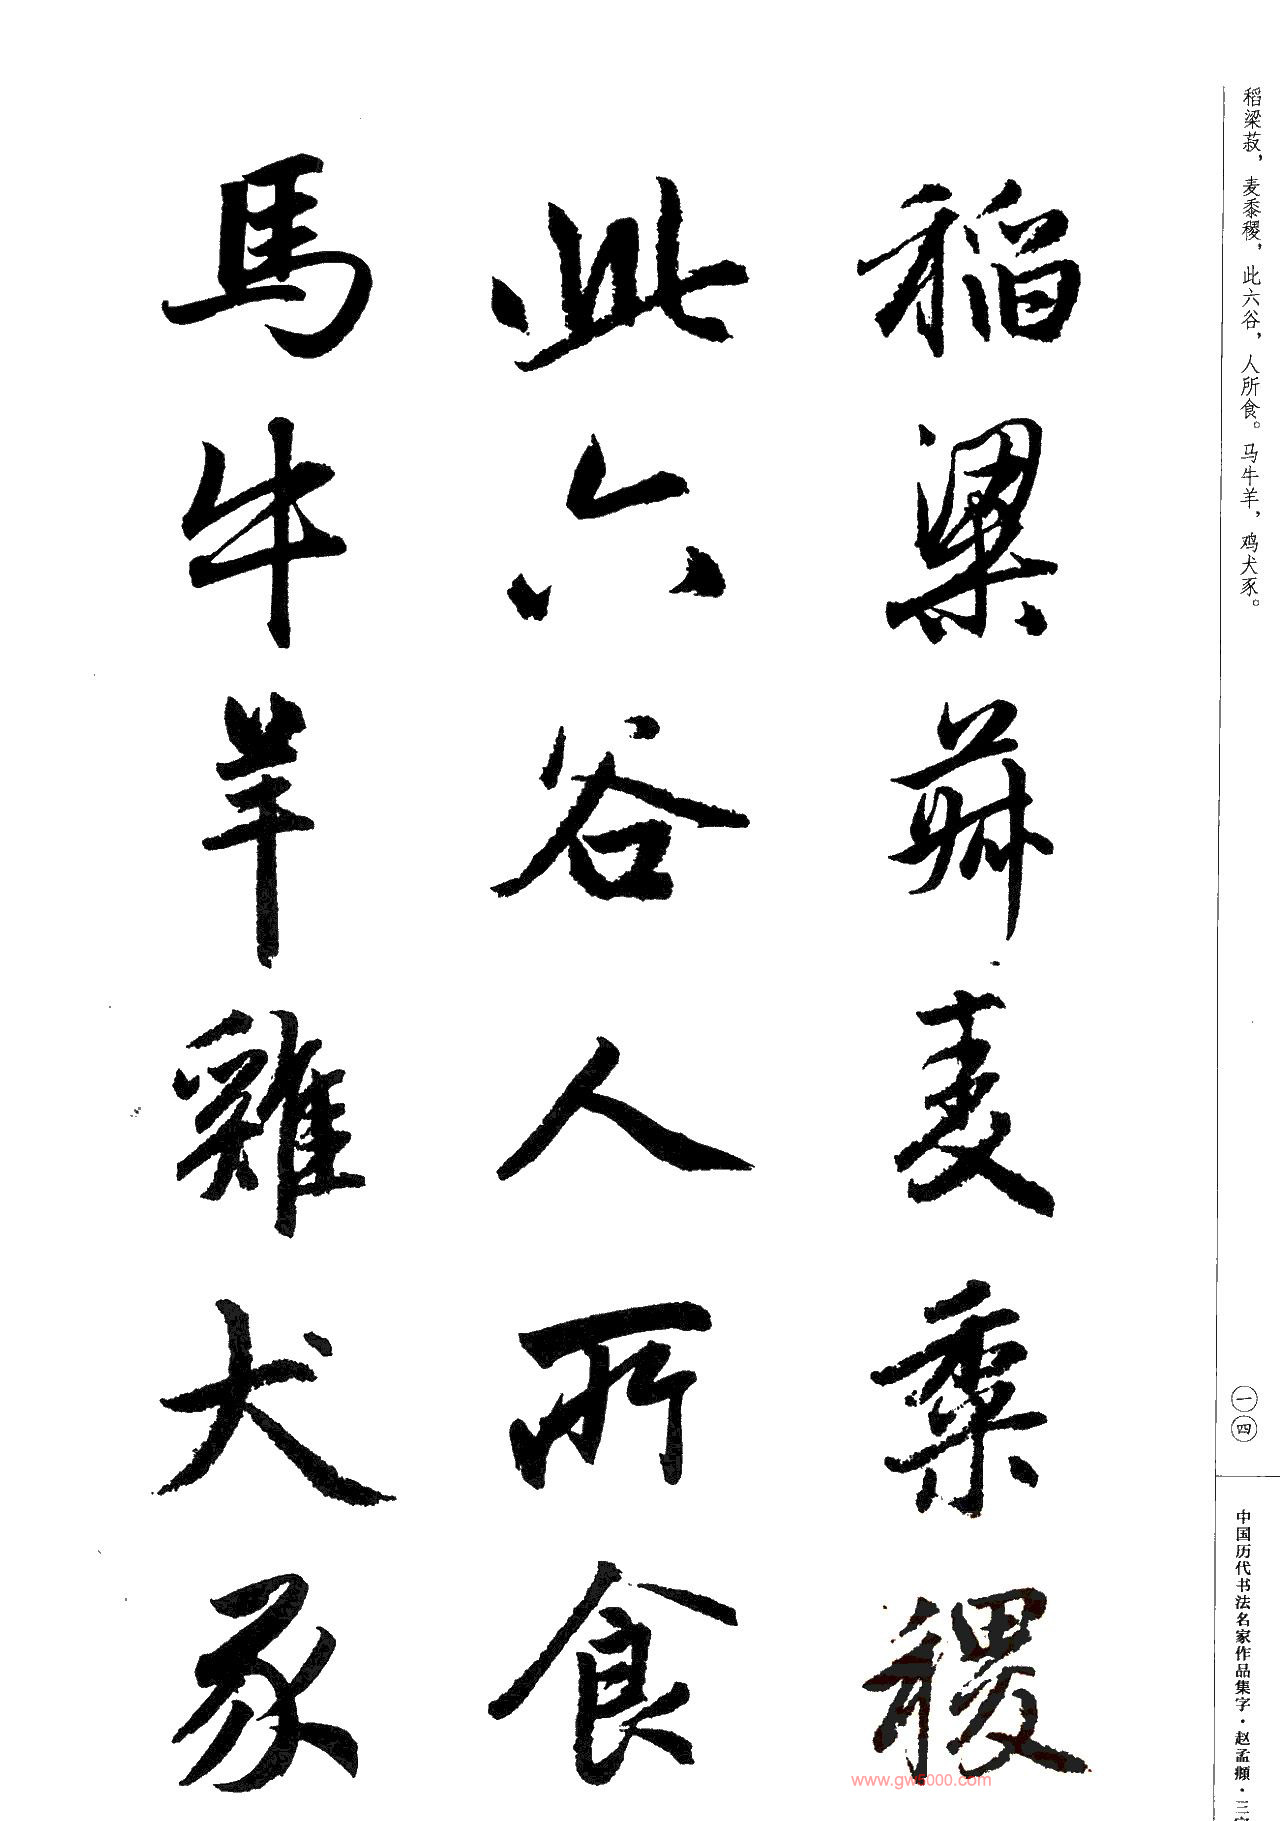 稻梁菽，麦黍稷，此六谷，人所食。马牛羊，鸡犬豕。
稻梁菽麦黍稷
此六谷人所食
馬牛羊雞犬豕
一四
中国历代书法名家作品集字·赵孟頫·三字
www.gw5000.com